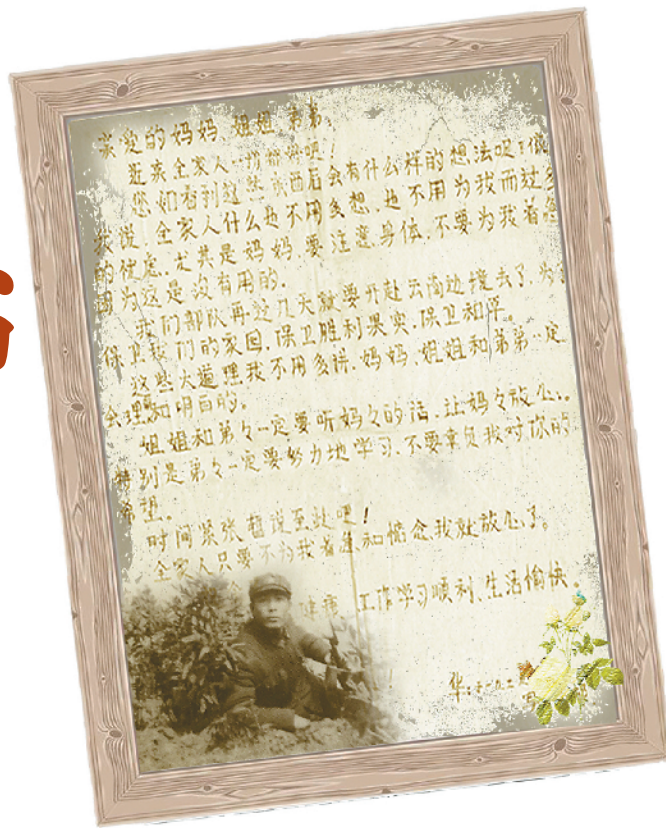 亲爱的妈妈、姐姐、弟弟:
近来全家人一切都好吧
您如看到这些东西后会有什么样的想法呢?依
我说,全家人什么也不用多想,也不用为我而过多
的忧虑,尤其是妈妈要注意身体,不要为我着急
因为这是没有用的.
我们部队再过几天就要开赴云南边境去了.为
保卫我们的家园,保卫胜利果实,保卫和平。
这些大道理我不用多讲.妈妈、姐姐和弟弟一定
会理和明白的。
姐姐和弟々一定要听妈々的话,让妈々放心。
特别是弟々一定要努力地学习,不要辜负我对你的
希望。
时间紧张 说至此吧!
全家人只要不为我着急和惦念,我就放心了。
健康 工作学习顺利、生活愉快。
华: